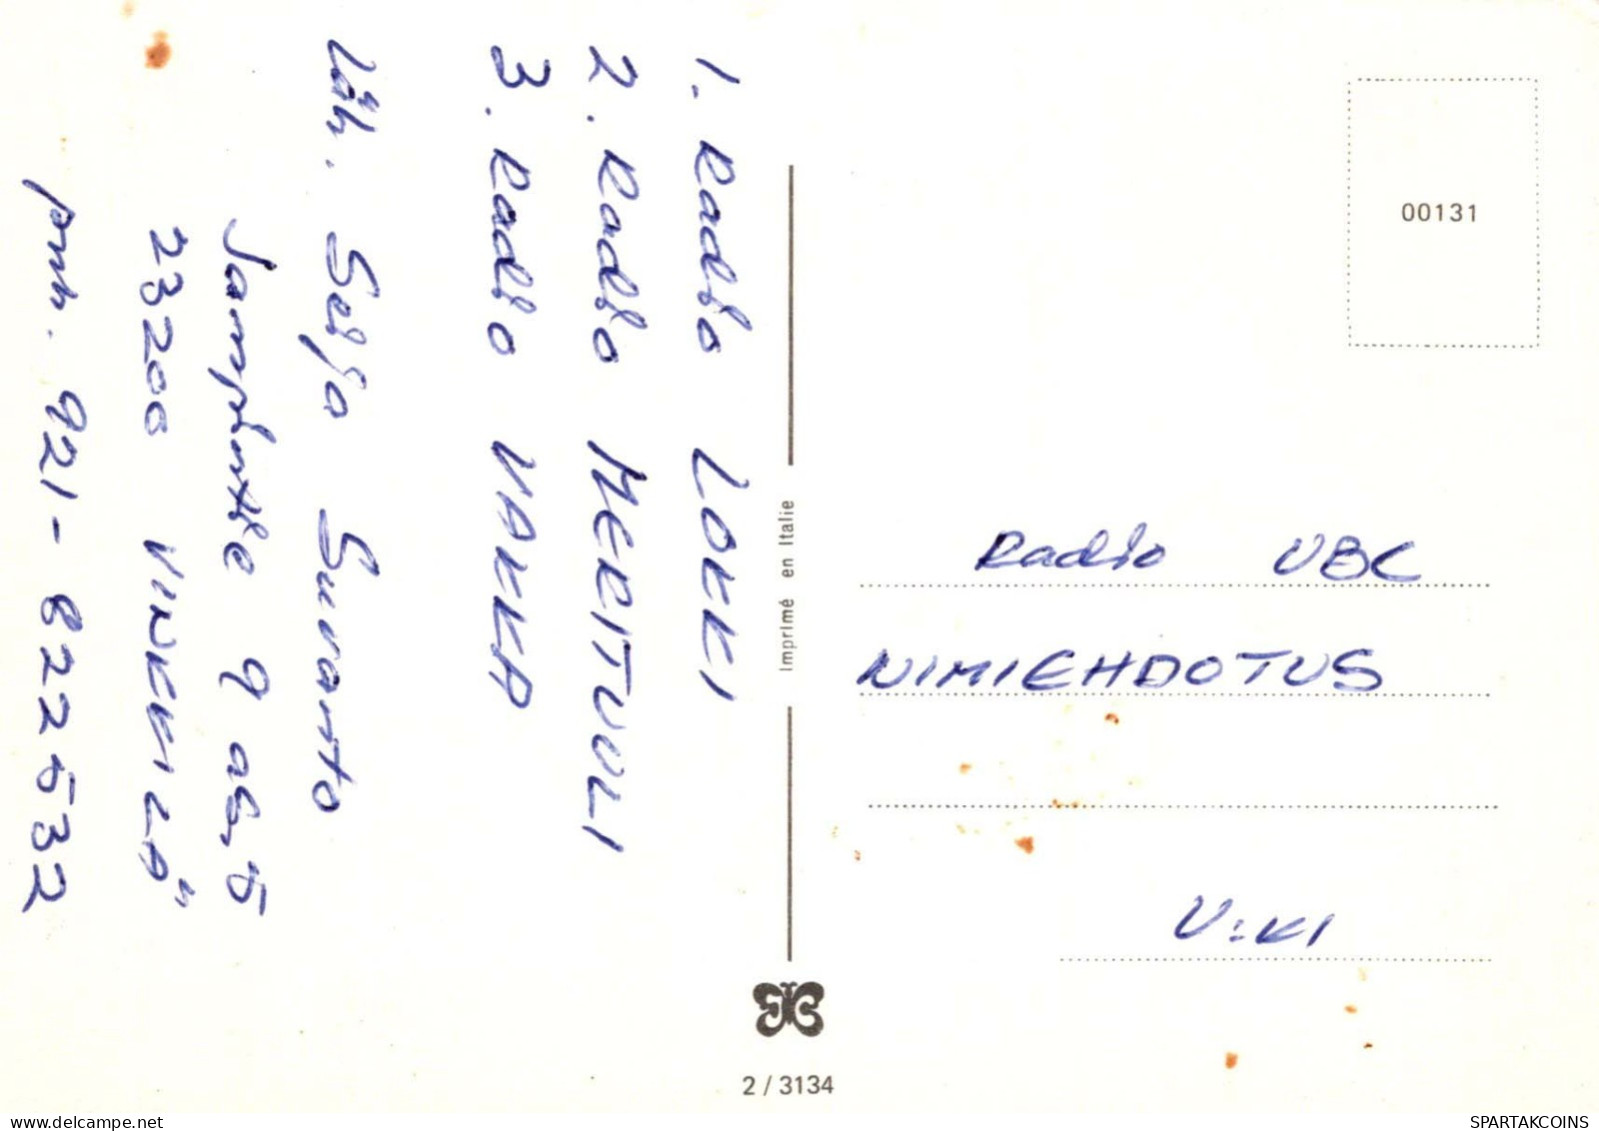 1. Radio LOKKI
2. Radio MERITULI
3. Radio VAKKA
Läh. Seija Suvanto
Sampintie 9 as. 5
23200 VINKKILÄ
puh. 921-822532
Imprimé en Italie
2 / 3134
00131
Radio UBC
NIMIEHDOTUS
U:KI
SPARTAKCOINS